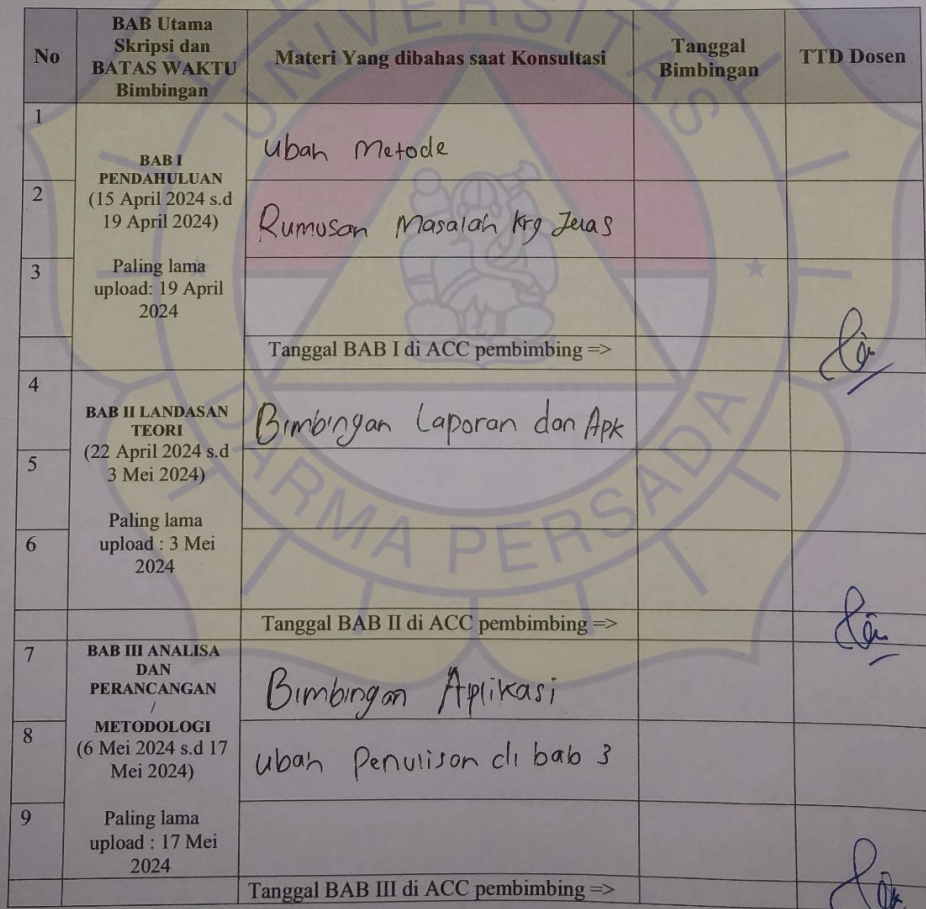 UNIVERSITAS
DARMA PERSADA
No
BAB Utama
Skripsi dan
BATAS WAKTU
Bimbingan
Materi Yang dibahas saat Konsultasi
Tanggal
Bimbingan
TTD Dosen
1
BAB I
PENDAHULUAN
(15 April 2024 s.d
19 April 2024)
Paling lama
upload: 19 April
2024
Ubah Metode
2
Rumusan Masalah krg Jelas
3
Tanggal BAB I di ACC pembimbing =>
4
BAB II LANDASAN
TEORI
(22 April 2024 s.d
3 Mei 2024)
Paling lama
upload : 3 Mei
2024
Bimbingan Laporan dan Apk
5
6
Tanggal BAB II di ACC pembimbing =>
7
BAB III ANALISA
DAN
PERANCANGAN
/
METODOLOGI
(6 Mei 2024 s.d 17
Mei 2024)
Paling lama
upload : 17 Mei
2024
Bimbingan Aplikasi
8
Ubah Penulisan di bab 3
9
Tanggal BAB III di ACC pembimbing =>